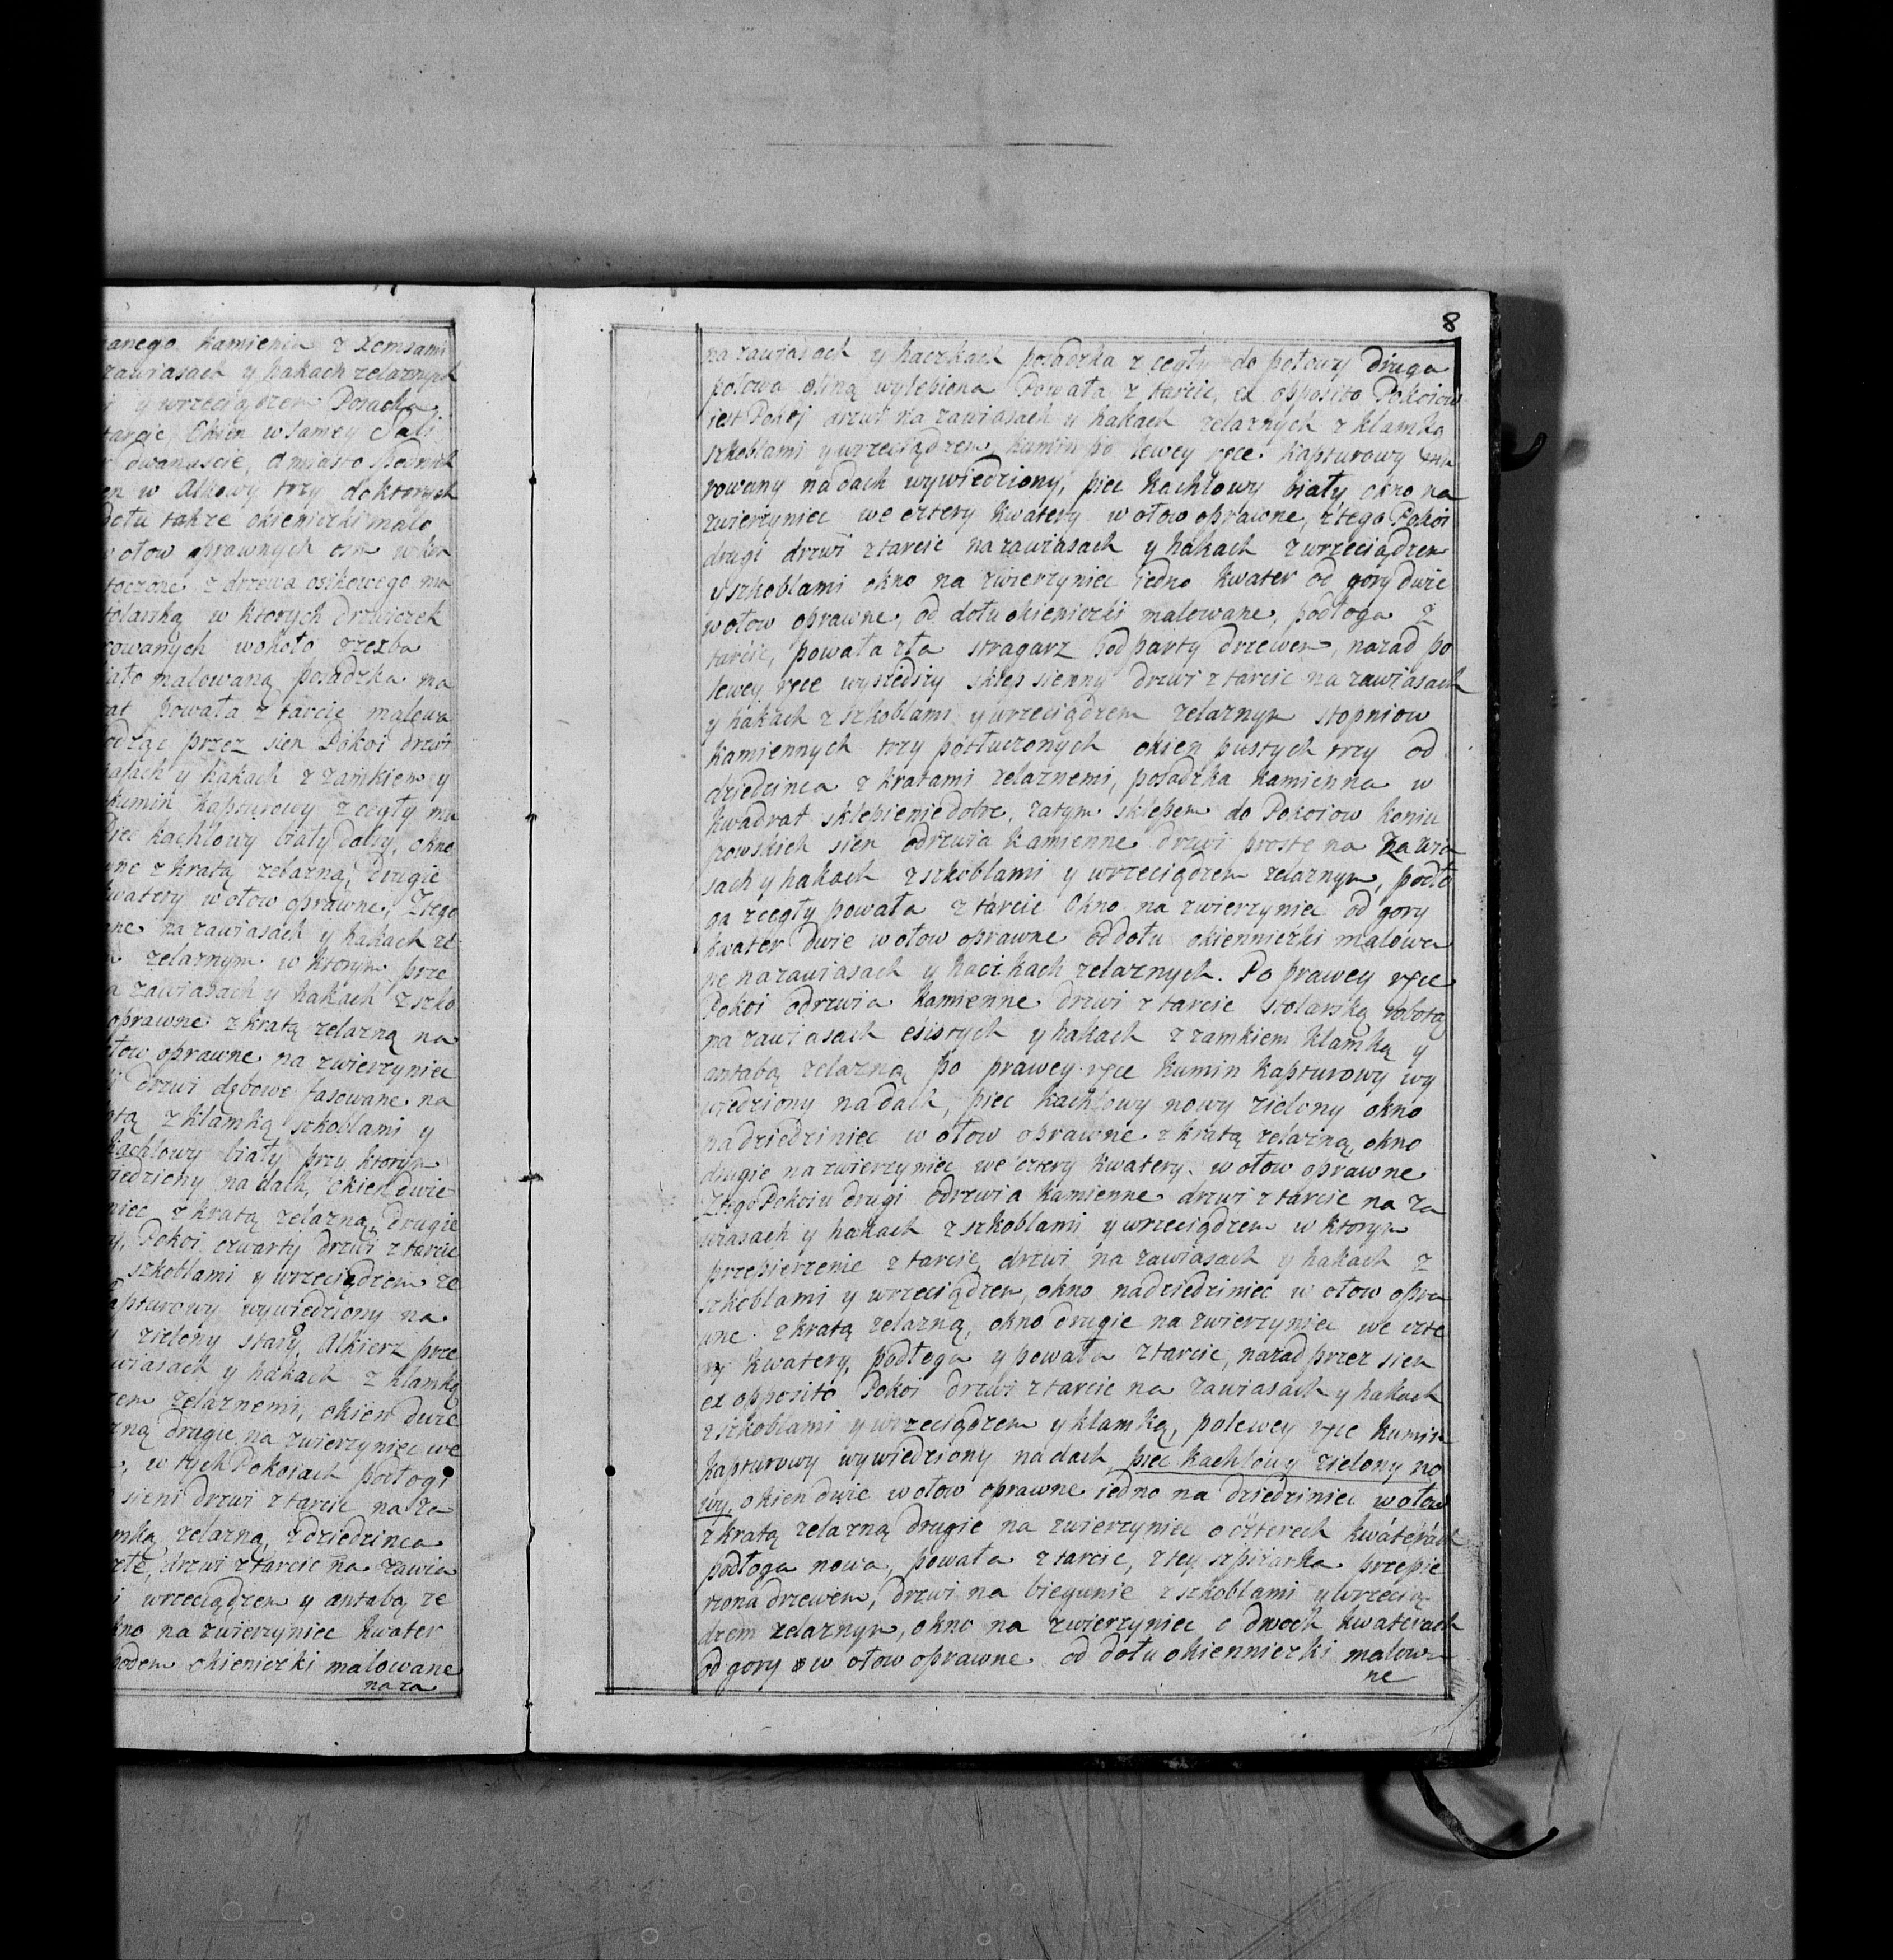 anego kamienia z xemsami
zawiasach y hakach zelaznych
y wrzeciądzem Posadka
tarcic, Okien w samey Sali
dwanascie, a miasto spodnich
en w Alkowy trzy do ktorych
dołu takze okieniczki malo
ołow oprawnych osm w kra
toczone z drzewa osikowego ma
tolarską w ktorych drzwiczek
rowanych wokoło rzezba
iało malowaną posadzka ma
at powała z tarcic malowa
odząc przez sien Pokoi drzwi
asach y hakach z zamkiem y
kumin kapturowy z cegły mu
Piec kachlowy biały dobry, okno
ne z kratą zelazną, drugie
kwatery w ołow oprawne, Ztego
ne na zawiasach y hakach ze
zelaznym w ktorym prze
a zawiasach y hakach z szko
oprawne z kratą zelazną na
ołow oprawne na zwierzyniec
drzwi dębowe fasowane na
tą z klamką szkoblami y
kachlowy biały przy ktorym
iedziony na dach, okien dwie
niec z kratą zelazną, drugie
y, Pokoi czwarty drzwi z tarcic
szkoblami y wrzeciądzem ze
apturowy wywiedziony na
zielony stary, Alkierz prze
wiasach y hakach z klamką
zem zelaznemi, okien dwie
zną drugie na zwierzyniec we
, w tych Pokoiach podłogi
sieni drzwi z tarcic na za
mką zelazną, z dziedzinca
złe, drzwi z tarcic na zawia
wrzeciądzem y antabą ze
kno na zwierzyniec kwater
podem okieniczki malowane
na za
8
na zawiasach y haczkach posadzka z cegły do połowy druga
połowa gliną wylepiona Powała z tarcic, ex opposito Pokoiow
iest Pokoj drzwi na zawiasach y hakach zelaznych z klamką
szkoblami y wrzeciądzem, kumin po lewey ręce kapturowy mu
rowany na dach wywiedziony, piec kachlowy biały okno na
zwierzyniec we cztery kwatery w ołow oprawne, z tego Pokoi
drugi drzwi z tarcic na zawiasach y hakach z wrzeciądzem
y szkoblami okno na zwierzyniec iedno kwater od gory dwie
w ołow oprawne, od dołu okieniczki malowane, podłoga z
tarcic, powała zła stragarz podparty drzewem, nazad po
lewey ręce wyszedszy sklep sienny drzwi z tarcic na zawiasach
y hakach z szkoblami y wrzeciądzem zelaznym stopniow
kamiennych trzy potłuczonych okien pustych trzy od
dziedzinca z kratami zelaznemi, posadzka kamienna w
kwadrat sklepienie dobre, zatym sklepem do Pokoiow koniu
szowskich sien odrzwia kamienne drzwi proste na zawia
sach y hakach z szkoblami y wrzeciądzem zelaznym, podło
ga z cegły powała z tarcic Okno na zwierzyniec od gory
kwater dwie w ołow oprawne od dołu okienniczki malowa
ne na zawiasach y haczkach zelaznych. Po prawey ręce
Pokoi odrzwia kamienne drzwi z tarcic stolarską robotą
na zawiasach esistych y hakach z zamkiem klamką y
antabą zelazną po prawey ręce kumin kapturowy wy
wiedziony na dach, piec kachlowy nowy zielony okno
na dziedziniec w ołow oprawne z kratą zelazną, okno
drugie na zwierzyniec we cztery kwatery w ołow oprawne
Ztego Pokoiu drugi odrzwia kamienne drzwi z tarcic na za
wiasach y hakach z szkoblami y wrzeciądzem w ktorym
przepierzenie z tarcic, drzwi na zawiasach y hakach z
szkoblami y wrzeciądzem, okno na dziedziniec w ołow opra
wne z kratą zelazną, okno drugie na zwierzyniec we czte
ry kwatery, podłoga y powała z tarcic, nazad przez sien
ex opposito Pokoi drzwi z tarcic na zawiasach y hakach
z szkoblami y wrzeciądzem y klamką, po lewey ręce kumin
kapturowy wywiedziony na dach, piec kachlowy zielony no
wy, okien dwie w ołow oprawne iedno na dziedziniec w ołow
z kratą zelazną drugie na zwierzyniec o czterech kwaterach
podłoga nowa, powała z tarcic, z tey szpizarka przepie
rzona drzewem, drzwi na biegunie z szkoblami y wrzecią
dzem zelaznym, okno na zwierzyniec o dwoch kwaterach
od gory w ołow oprawne od dołu okienniczki malowa
ne